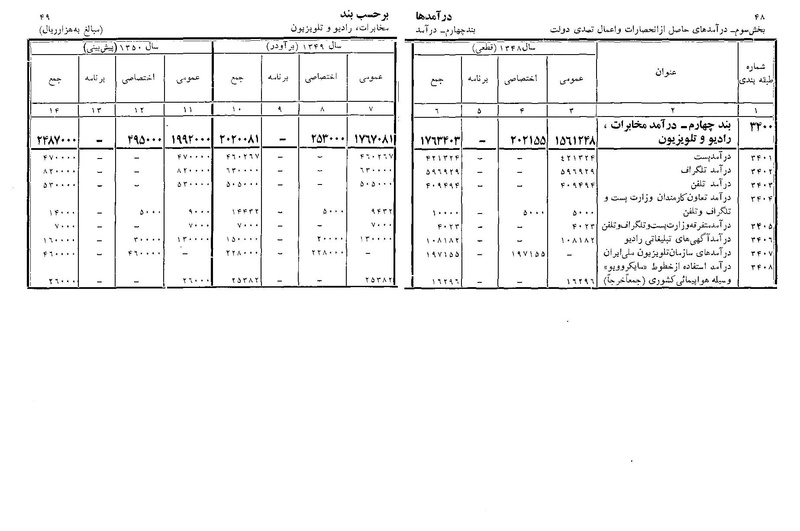 ۴۸ درآمدها
بخش سوم ـ درآمدهای حاصل از انحصارات و اعمال تصدی دولت بند چهارم ـ درآمد
شماره طبقه بندی عنوان سال ۱۳۴۸ (قطعی)
عمومی اختصاصی برنامه جمع
۱ ۲ ۳ ۴ ۵ ۶
۳۴۰۰ بند چهارم ـ درآمد مخابرات ،
رادیو و تلویزیون ۱۵۶۱۲۴۸ ۲۰۲۱۵۵ ـ ۱۷۶۳۴۰۳
۳۴۰۱ درآمد پست ۴۲۱۳۲۴ ـ ـ ۴۲۱۳۲۴
۳۴۰۲ درآمد تلگراف ۵۹۶۹۲۹ ـ ـ ۵۹۶۹۲۹
۳۴۰۳ درآمد تلفن ۴۰۹۴۹۴ ـ ـ ۴۰۹۴۹۴
۳۴۰۴ درآمد تعاون کارمندان وزارت پست و
تلگراف و تلفن ۵۰۰۰ ۵۰۰۰ ـ ۱۰۰۰۰
۳۴۰۵ درآمد متفرقه وزارت پست و تلگراف و تلفن ۴۰۲۳ ـ ـ ۴۰۲۳
۳۴۰۶ درآمد آگهی‌های تبلیغاتی رادیو ۱۰۸۱۸۲ ـ ـ ۱۰۸۱۸۲
۳۴۰۷ درآمدهای سازمان تلویزیون ملی ایران ـ ۱۹۷۱۵۵ ـ ۱۹۷۱۵۵
۳۴۰۸ درآمد استفاده از خطوط «مایکروویو»
وسیله هواپیمائی کشوری (جمعاً خرجاً) ۱۶۲۹۶ ـ ـ ۱۶۲۹۶
بر حسب بند ۴۹
مخابرات، رادیو و تلویزیون (مبالغ به هزار ریال)
سال ۱۳۴۹ (برآورد) سال ۱۳۵۰ (پیش‌بینی)
عمومی اختصاصی برنامه جمع عمومی اختصاصی برنامه جمع
۷ ۸ ۹ ۱۰ ۱۱ ۱۲ ۱۳ ۱۴
۱۷۶۷۰۸۱ ۲۵۳۰۰۰ ـ ۲۰۲۰۰۸۱ ۱۹۹۲۰۰۰ ۴۹۵۰۰۰ ـ ۲۴۸۷۰۰۰
۴۶۰۲۶۷ ـ ـ ۴۶۰۲۶۷ ۴۷۰۰۰۰ ـ ـ ۴۷۰۰۰۰
۶۳۰۰۰۰ ـ ـ ۶۳۰۰۰۰ ۸۲۰۰۰۰ ـ ـ ۸۲۰۰۰۰
۵۰۵۰۰۰ ـ ـ ۵۰۵۰۰۰ ۵۳۰۰۰۰ ـ ـ ۵۳۰۰۰۰
۹۴۳۲ ۵۰۰۰ ـ ۱۴۴۳۲ ۹۰۰۰ ۵۰۰۰ ـ ۱۴۰۰۰
۷۰۰۰ ـ ـ ۷۰۰۰ ۷۰۰۰ ـ ـ ۷۰۰۰
۱۳۰۰۰۰ ۲۰۰۰۰ ـ ۱۵۰۰۰۰ ۱۳۰۰۰۰ ۳۰۰۰۰ ـ ۱۶۰۰۰۰
ـ ۲۲۸۰۰۰ ـ ۲۲۸۰۰۰ ـ ۴۶۰۰۰۰ ـ ۴۶۰۰۰۰
۲۵۳۸۲ ـ ـ ۲۵۳۸۲ ۲۶۰۰۰ ـ ـ ۲۶۰۰۰